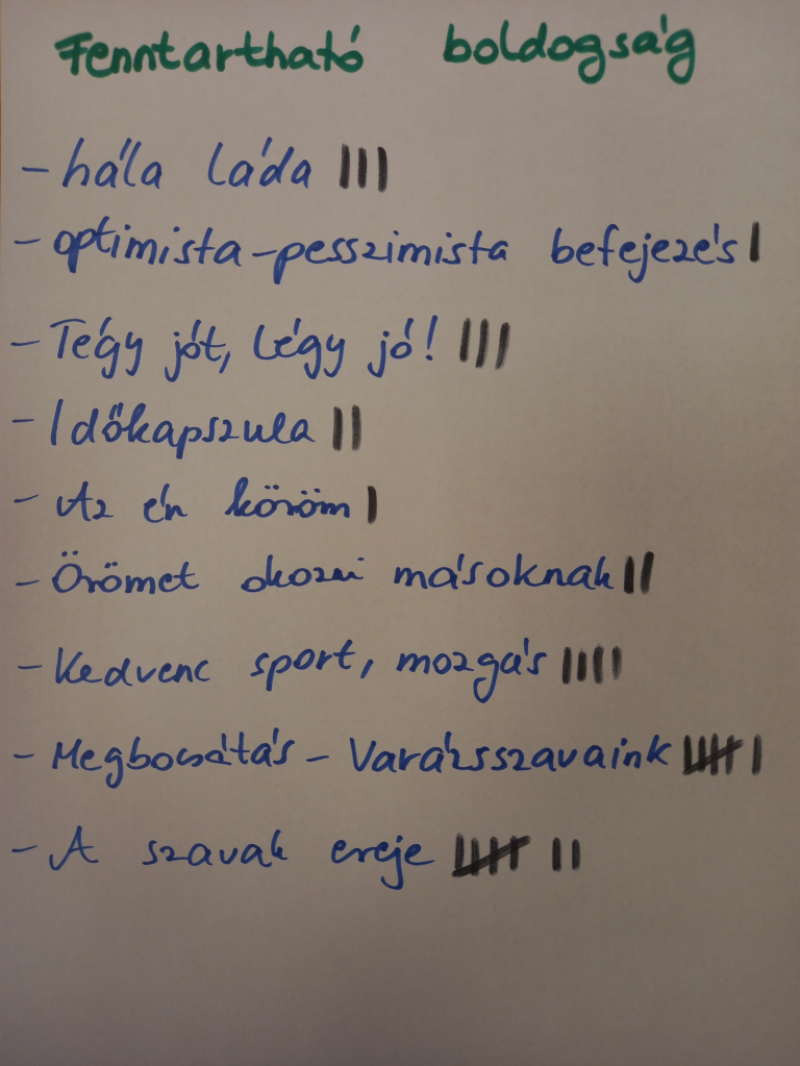 Fenntartható boldogság
- hála láda |||
- optimista-pesszimista befejezés |
- Tégy jót, légy jó! |||
- Időkapszula ||
- Az én köröm |
- Örömet okozni másoknak ||
- Kedvenc sport, mozgás ||||
- Megbocsátás - Varázsszavaink |||| |
- A szavak ereje |||| ||